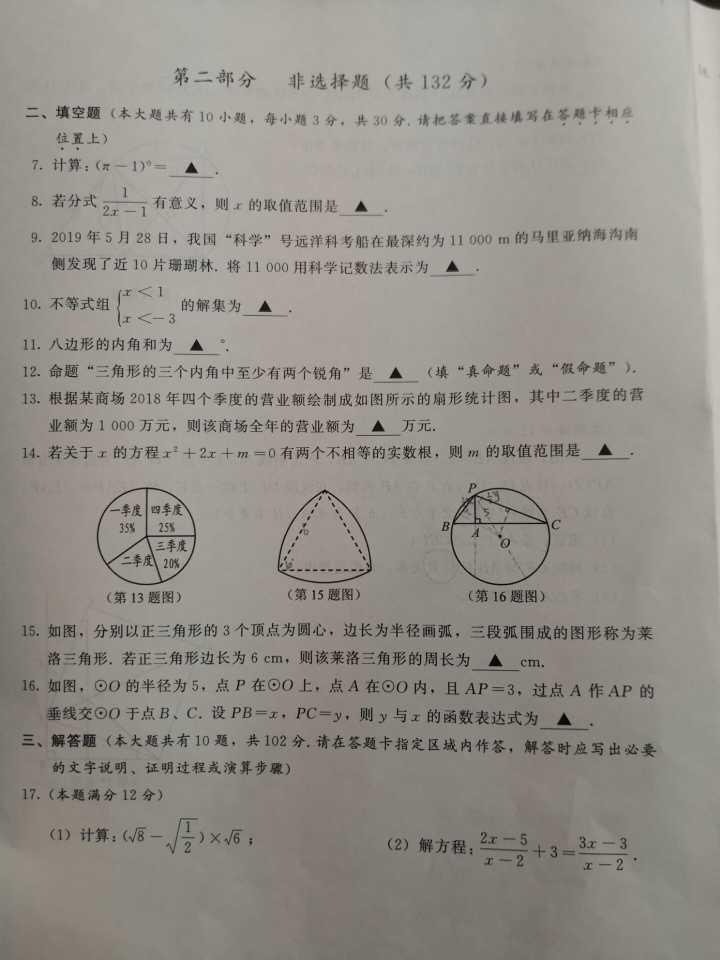 第二部分 非选择题(共 132 分)
二、填空题(本大题共有 10 小题,每小题 3 分,共 30 分.请把答案直接填写在答题卡相应
位置上)
7. 计算:(π-1)⁰= ▲ .
8. 若分式 1/(2x-1) 有意义,则 x 的取值范围是 ▲ .
9. 2019 年 5 月 28 日,我国“科学”号远洋科考船在最深约为 11 000 m 的马里亚纳海沟南
侧发现了近 10 片珊瑚林. 将 11 000 用科学记数法表示为 ▲ .
10. 不等式组 { x<1 x<-3 的解集为 ▲ .
11. 八边形的内角和为 ▲ °.
12. 命题“三角形的三个内角中至少有两个锐角”是 ▲ (填“真命题”或“假命题”).
13. 根据某商场 2018 年四个季度的营业额绘制成如图所示的扇形统计图,其中二季度的营
业额为 1 000 万元,则该商场全年的营业额为 ▲ 万元.
14. 若关于 x 的方程 x²+2x+m=0 有两个不相等的实数根,则 m 的取值范围是 ▲ .
一季度 四季度
35% 25%
三季度
二季度 20%
P
5
B A C
O
(第 13 题图) (第 15 题图) (第 16 题图)
15. 如图,分别以正三角形的 3 个顶点为圆心,边长为半径画弧,三段弧围成的图形称为莱
洛三角形. 若正三角形边长为 6 cm,则该莱洛三角形的周长为 ▲ cm.
16. 如图,⊙O 的半径为 5,点 P 在⊙O 上,点 A 在⊙O 内,且 AP=3,过点 A 作 AP 的
垂线交⊙O 于点 B、C. 设 PB=x,PC=y,则 y 与 x 的函数表达式为 ▲ .
三、解答题(本大题共有 10 题,共 102 分.请在答题卡指定区域内作答,解答时应写出必要
的文字说明、证明过程或演算步骤)
17.(本题满分 12 分)
(1) 计算:(√8-√(1/2))×√6; (2) 解方程:(2x-5)/(x-2)+3=(3x-3)/(x-2).